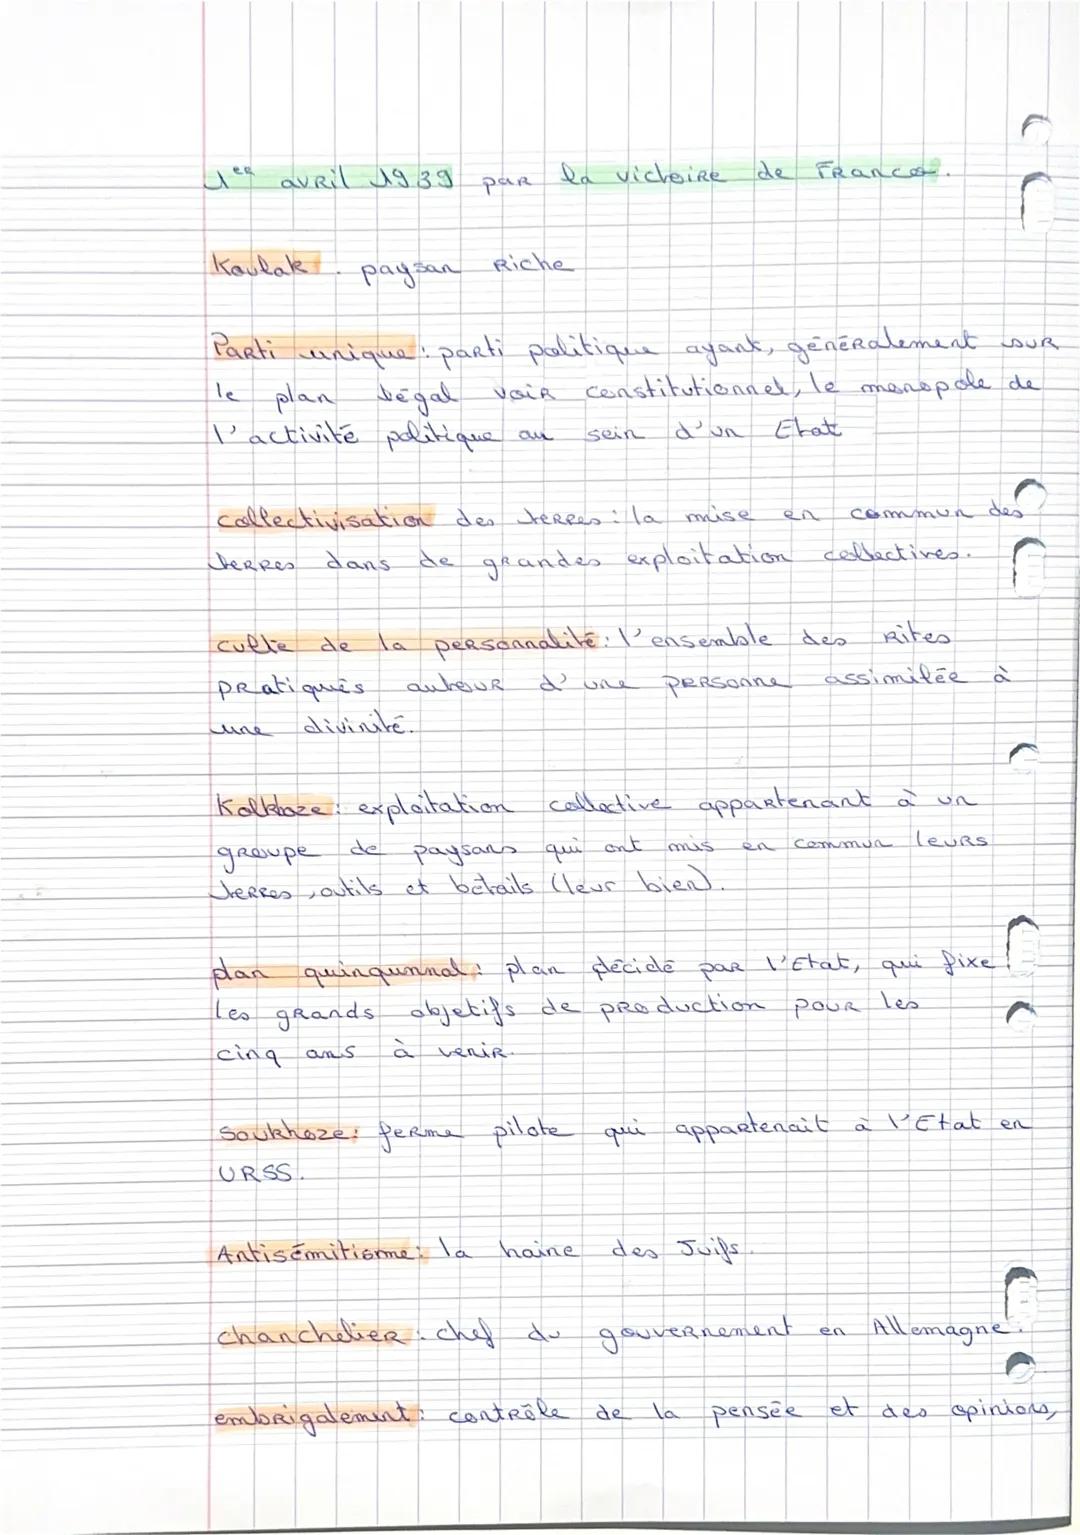 1er avril 1939 par la victoire de Franco.
Koulak : paysan riche
Parti unique : parti politique ayant, généralement sur
le plan légal voir constitutionnel, le monopole de
l'activité politique au sein d'un Etat
collectivisation des terres : la mise en commun des
terres dans de grandes exploitation collectives.
culte de la personnalité : l'ensemble des rites
pratiqués autour d'une personne assimilée à
une divinité.
Kolkhoze : exploitation collective appartenant à un
groupe de paysans qui ont mis en commun leurs
terres, outils et bétails (leur bien).
plan quinqunnal : plan décidé par l'Etat, qui fixe
les grands objetifs de production pour les
cinq ans à venir.
Sovkhoze : ferme pilote qui appartenait à l'Etat en
URSS.
Antisémitisme : la haine des Juifs.
chanchelier : chef du gouvernement en Allemagne.
embrigalement : contrôle de la pensée et des opinions,